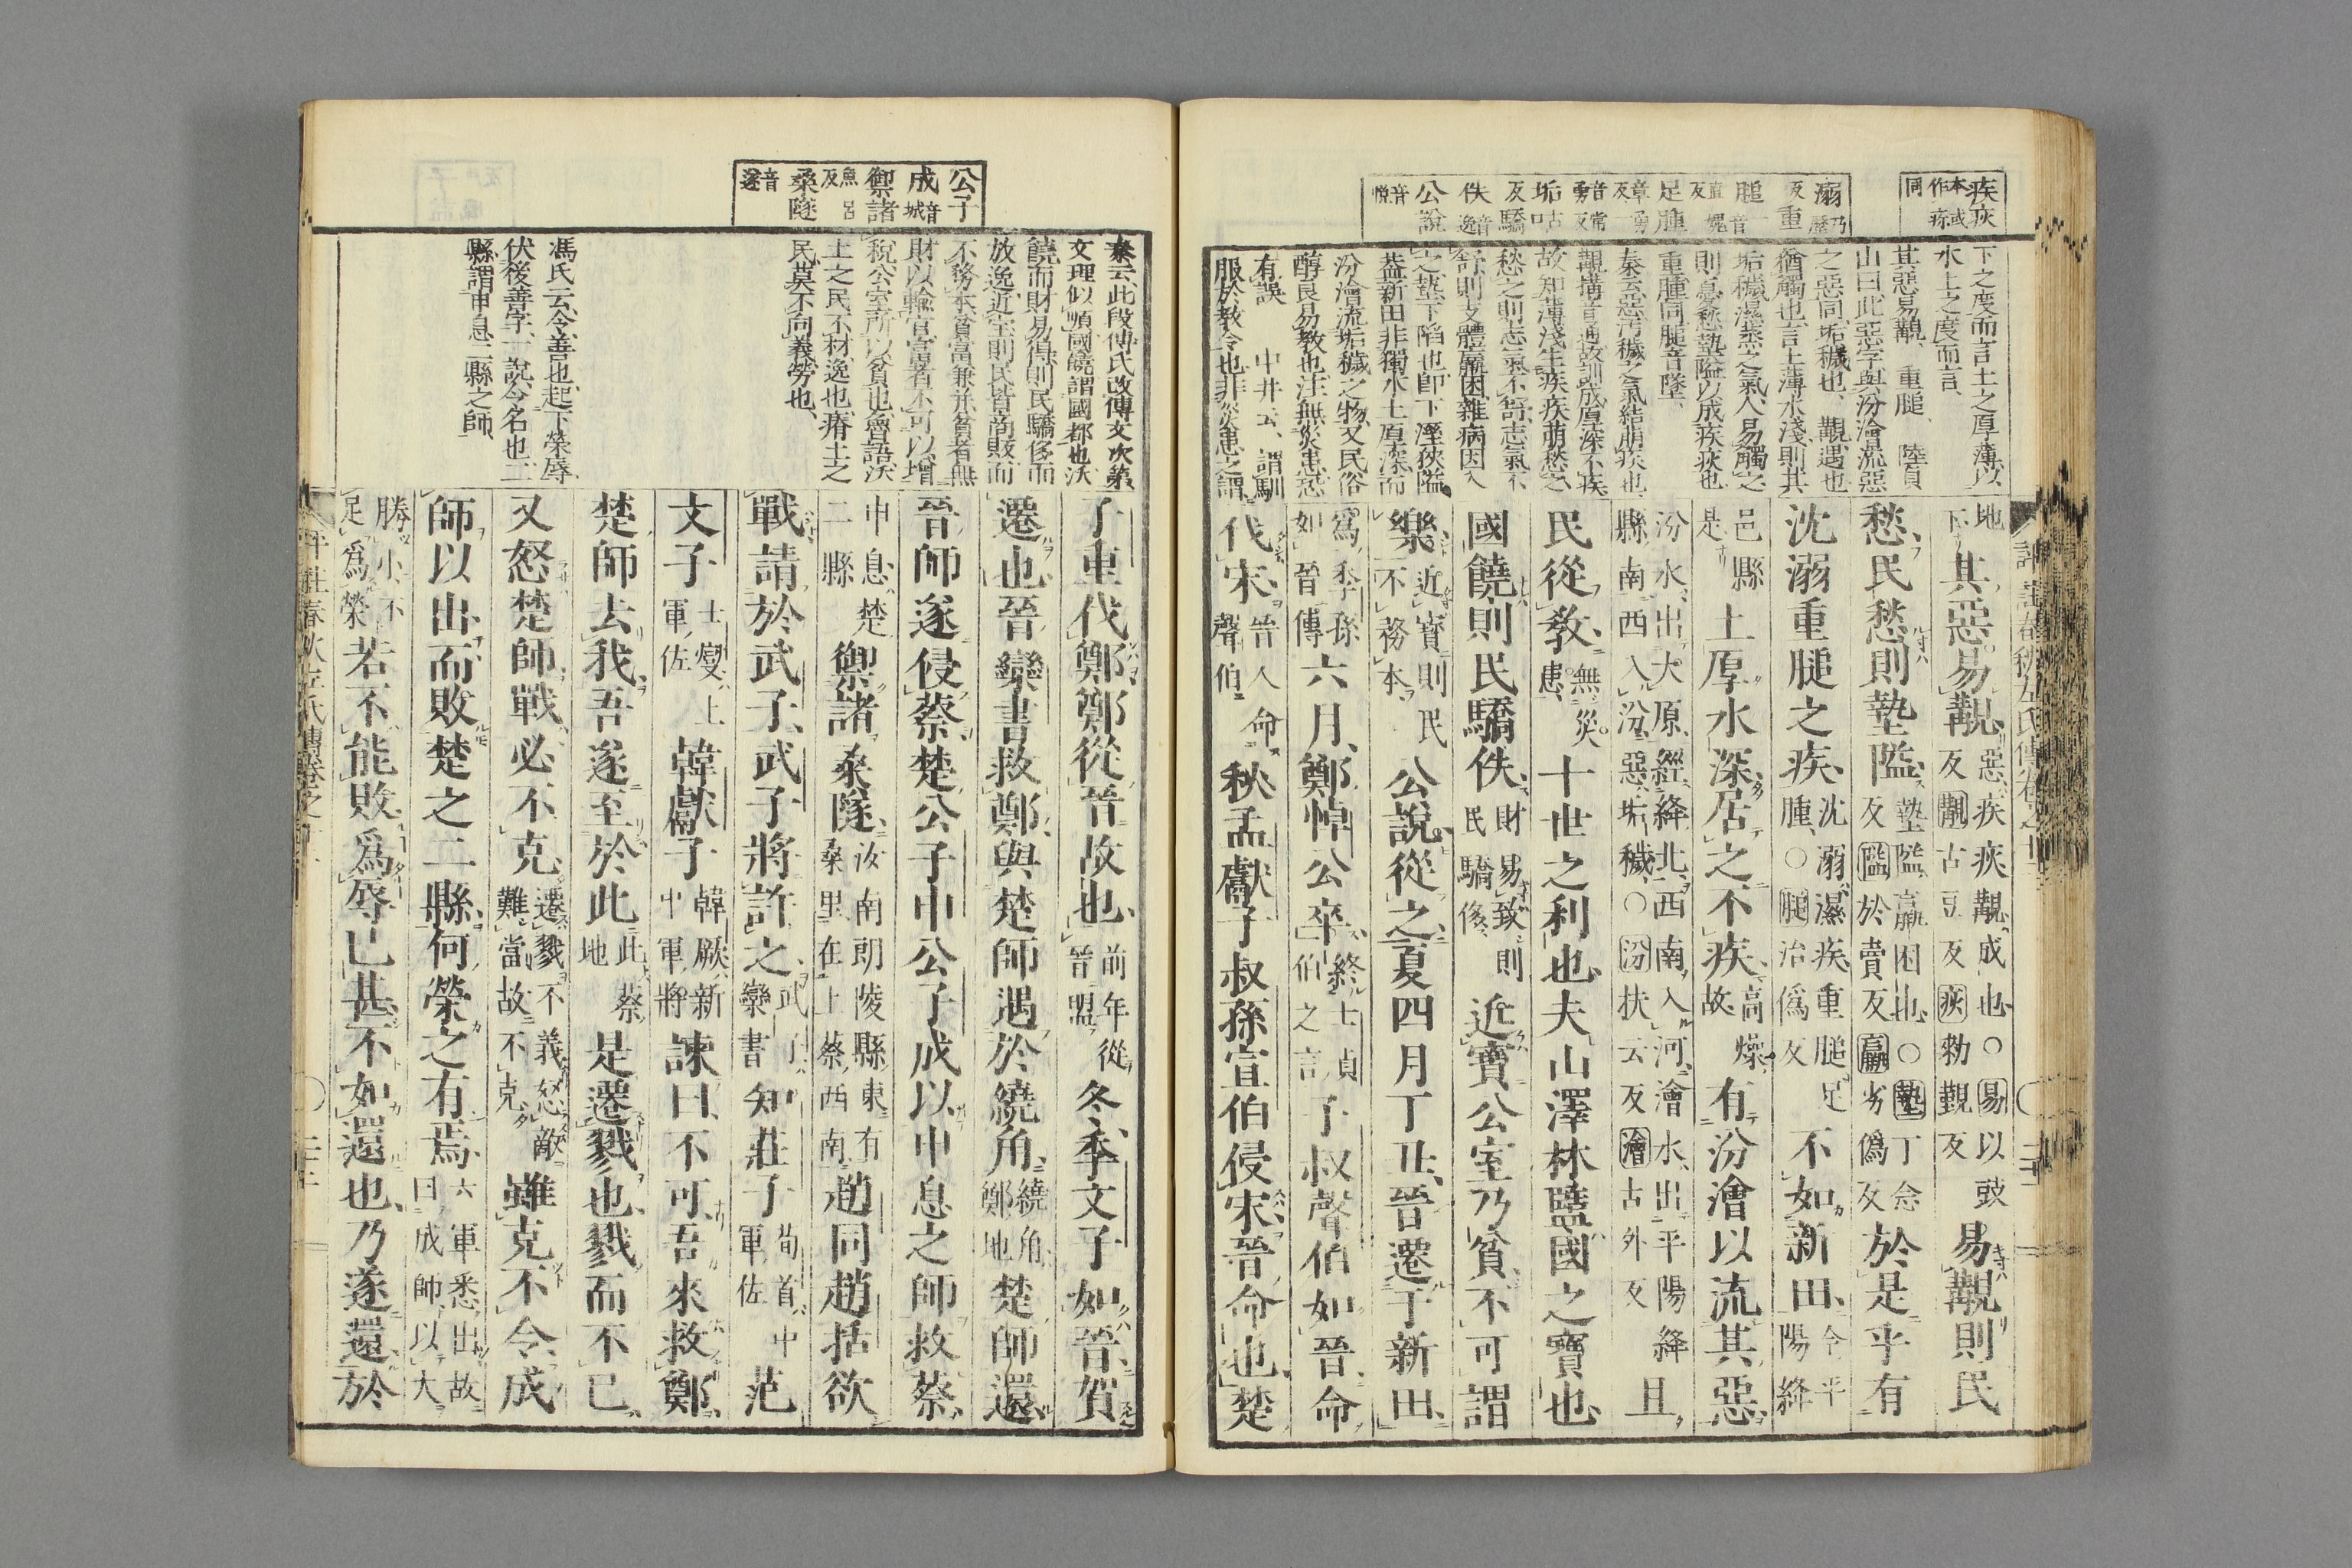 疾疢
本或作疹同
溺乃歷反
重腿音一直媿反
足腫章勇反一音常勇反
垢咕
反驕
佚音逸
公說音悅
下之度而言土之厚薄以
水土之度而言
其惡易覯重腿陸貞
山曰此惡字與汾澮流惡
之惡同垢穢也覯遇也
猶觸也言土薄水淺則其
垢穢濕蒸之氣人易觸之
則憂愁墊隘以成疾疢也
重腫同腿音墜
秦云惡汚穢之氣結萠疾也
故知薄淺生疾疾萠愁
愁之則志氣不舒志氣不
舒則支體羸困雜病因入
之墊下陷也卽下溼狹隘
蓋新田非獨水土原深而
汾澮流垢穢之物又民俗
醇良易教也注無災患恐
有誤中井云謂馴
服於教令也非災患之謂
地下其惡易覯惡疾疢覯成也○易以豉反覯古豆反疢勑覲反易覯則民
愁民愁則墊隘墊隘羸困也○墊丁念反隘於賣反羸劣僞反於是乎有
沈溺重腿之疾沈溺濕疾重腿足腫○腿治僞反不如新田今平陽絳
邑縣是土厚水深居之不疾高燥故有汾澮以流其惡
汾水出大原經絳北西南入河澮水出平陽絳縣南西入汾惡垢穢○汾扶云反澮古外反且
民從教無災患十世之利也夫山澤林鹽國之寶也
國饒則民驕佚財易致則民驕侈近寶公室乃貧不可謂
樂近寶則民不務本公說從之夏四月丁丑晉遷于新田
爲季孫如晉傳六月鄭悼公卒終士貞伯之言子叔聲伯如晉命
代宋晉人命聲伯秋孟獻子叔孫宣伯侵宋晉命也楚
公子
成音城
禦諸魚呂反
桑隧音遂
秦云此段傅氏改傳文次第
文理似順國饒謂國都也沃
饒而財易得則民驕侈而
放逸近宝則民皆商販而
不務本貧富兼幷貧者無
財以輸官富者不可以增
稅公室所以貧也魯語沃
土之民不材逸也瘠土之
民莫不向義勞也
馮氏云令善也起下榮辱
伏後善字一說令名也二
縣謂申息二縣之師
子重伐鄭鄭從晉故也前年從晉盟冬季文子如晉賀
遷也晉欒書救鄭與楚師遇於繞角繞角鄭地楚師還
晉師遂侵蔡楚公子申公子成以申息之師救蔡
申息楚二縣禦諸桑隧汝南朗陵縣東有桑里在上蔡西南趙同趙括欲
戰請於武子武子將許之武子欒書知莊子荀首中軍佐范
文子士燮上軍佐韓獻子韓厥新中軍將諫曰不可吾來救鄭
楚師去我吾遂至於此此蔡地是遷戮也戮而不已
又怒楚師戰必不克遷戮不義怒敵難當故不克雖克不令成
師以出而敗楚之二縣何榮之有焉六軍悉出故曰成師以大
勝小不足爲榮若不能敗爲辱已甚不如還也乃遂還於